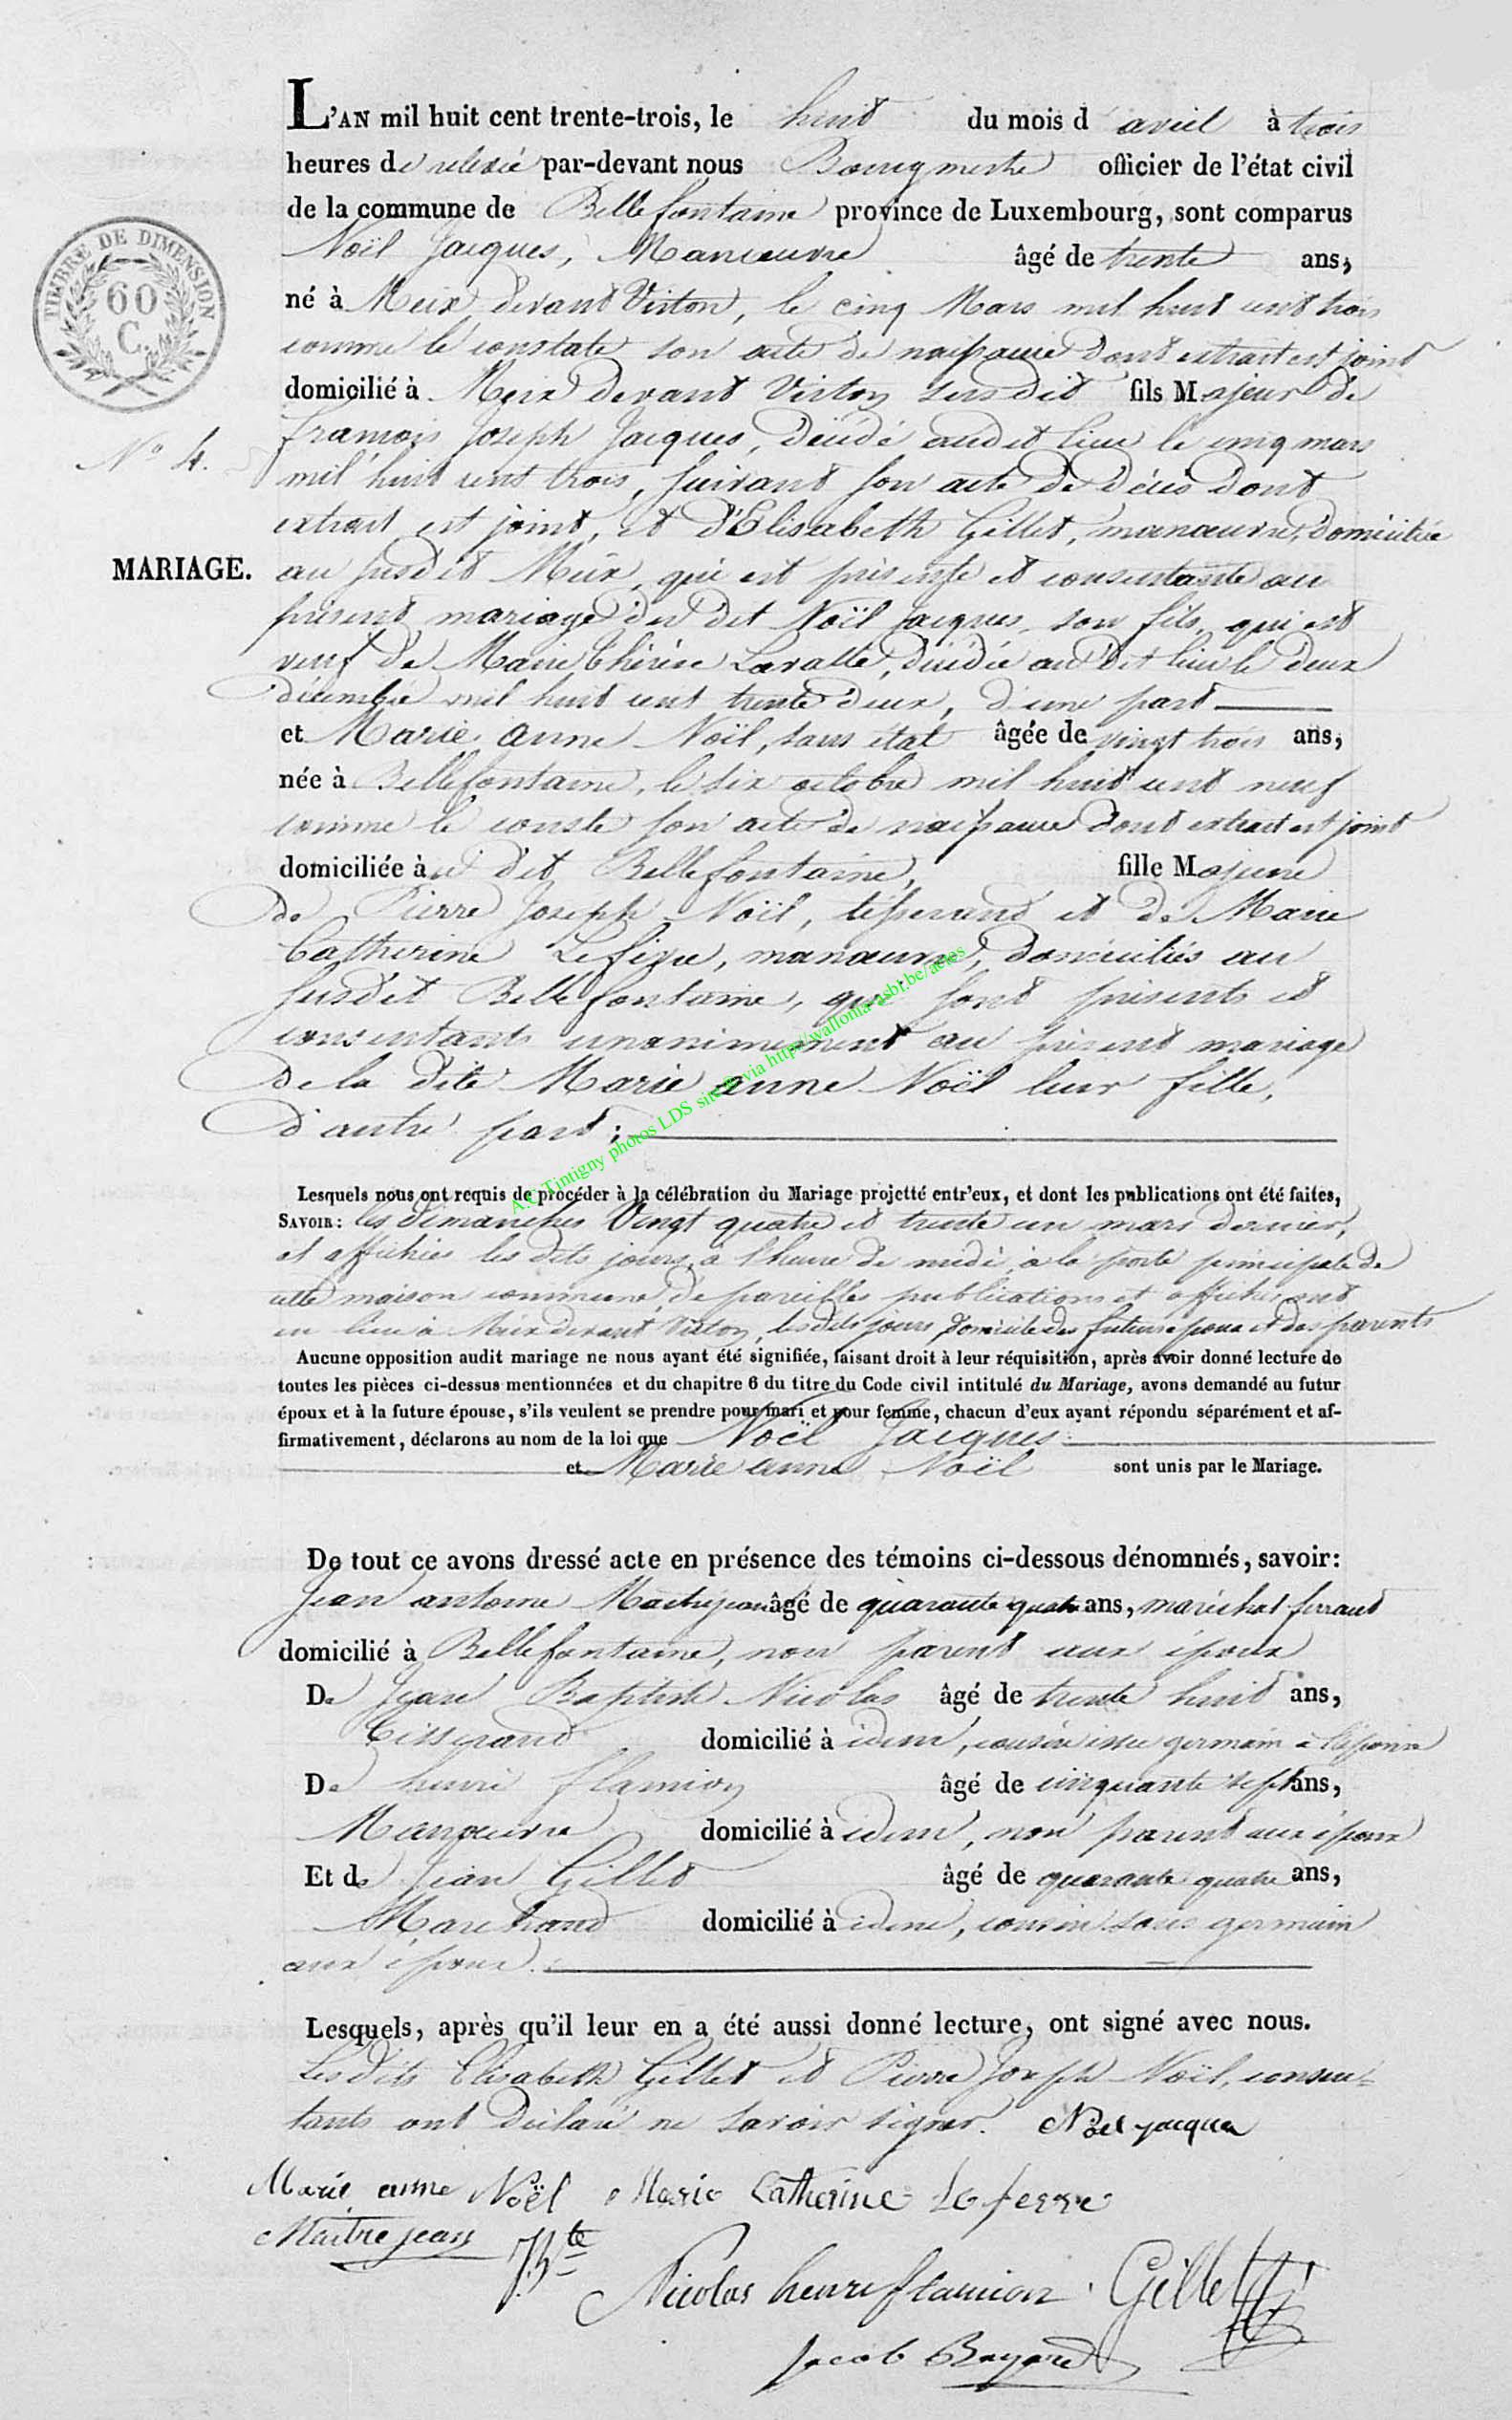 L'AN mil huit cent trente-trois, le huit du mois d'avril à trois
heures de relevée par-devant nous Bourgmestre officier de l'état civil
de la commune de Bellefontaine province de Luxembourg, sont comparus
Noël Jacques, Manœuvre âgé de trente ans,
né à Meix devant Virton, le cinq Mars mil huit cent trois
comme le constate son acte de naissance dont extrait est joint
domicilié à Meix devant Virton susdit fils Majeur de
françois Joseph Jacques, décédé audit lieu le cinq mars
mil huit cent trois, suivant son acte de décès dont
extrait est joint, et d'Elisabeth Gillet, manœuvre, domiciliée
au susdit Meix, qui est présente et consentante au
présent mariage du dit Noël Jacques son fils, qui est
veuf de Marie Thérèse Lavalle, décédée au dit lieu le deux
décembre mil huit cent trente deux, d'une part
et Marie anne Noël, sans état âgée de vingt trois ans,
née à Bellefontaine, le six octobre mil huit cent neuf
comme le conste son acte de naissance dont extrait est joint
domiciliée à dit Bellefontaine, fille Majeure
de Pierre Joseph Noël, tisserand et de Marie
Catherine Lefevre, manœuvre, domiciliés au
susdit Bellefontaine, qui sont présents et
consentants unanimement au présent mariage
de la dite Marie anne Noël leur fille,
d'autre part;
TIMBRE DE DIMENSION
60
C.
N° 4.
MARIAGE.
A.C Tintigny photos LDS site via http://wallonia-asbl.be/actes
Lesquels nous ont requis de procéder à la célébration du Mariage projetté entr'eux, et dont les publications ont été faites,
SAVOIR: les dimanches Vingt quatre et trente un mars dernier,
et affichées les dits jours, à l'heure de midi, à la porte principale de
cette maison commune, de pareilles publications et affiches ont
eu lieu à Meix devant Virton, les dits jours, domicile du futur époux et des parents
Aucune opposition audit mariage ne nous ayant été signifiée, faisant droit à leur réquisition, après avoir donné lecture de
toutes les pièces ci-dessus mentionnées et du chapitre 6 du titre du Code civil intitulé du Mariage, avons demandé au futur
époux et à la future épouse, s'ils veulent se prendre pour mari et pour femme, chacun d'eux ayant répondu séparément et af-
firmativement, déclarons au nom de la loi que Noël Jacques
et Marie anne Noël sont unis par le Mariage.
De tout ce avons dressé acte en présence des témoins ci-dessous dénommés, savoir:
Jean antoine Maitrejean âgé de quarante quatre ans, maréchal ferrant
domicilié à Bellefontaine, non parent aux époux
De Jean Baptiste Nicolas âgé de trente huit ans,
Tisserand domicilié à idem, cousin issu germain à l'épouse
De henri flamion âgé de cinquante sept ans,
Manœuvre domicilié à idem, non parent aux époux
Et de Jean Gillet âgé de quarante quatre ans,
Marchand domicilié à idem, cousin sous germain
aux époux.
Lesquels, après qu'il leur en a été aussi donné lecture, ont signé avec nous.
Lesdits Elisabeth Gillet et Pierre Joseph Noël, consen-
tants ont déclaré ne savoir signer. Noel jacques
Marie anne Noël Marie Catherine Lefevre
Maitrejean J.Bte
Nicolas henri flamion Gillet
Jacob Bayard